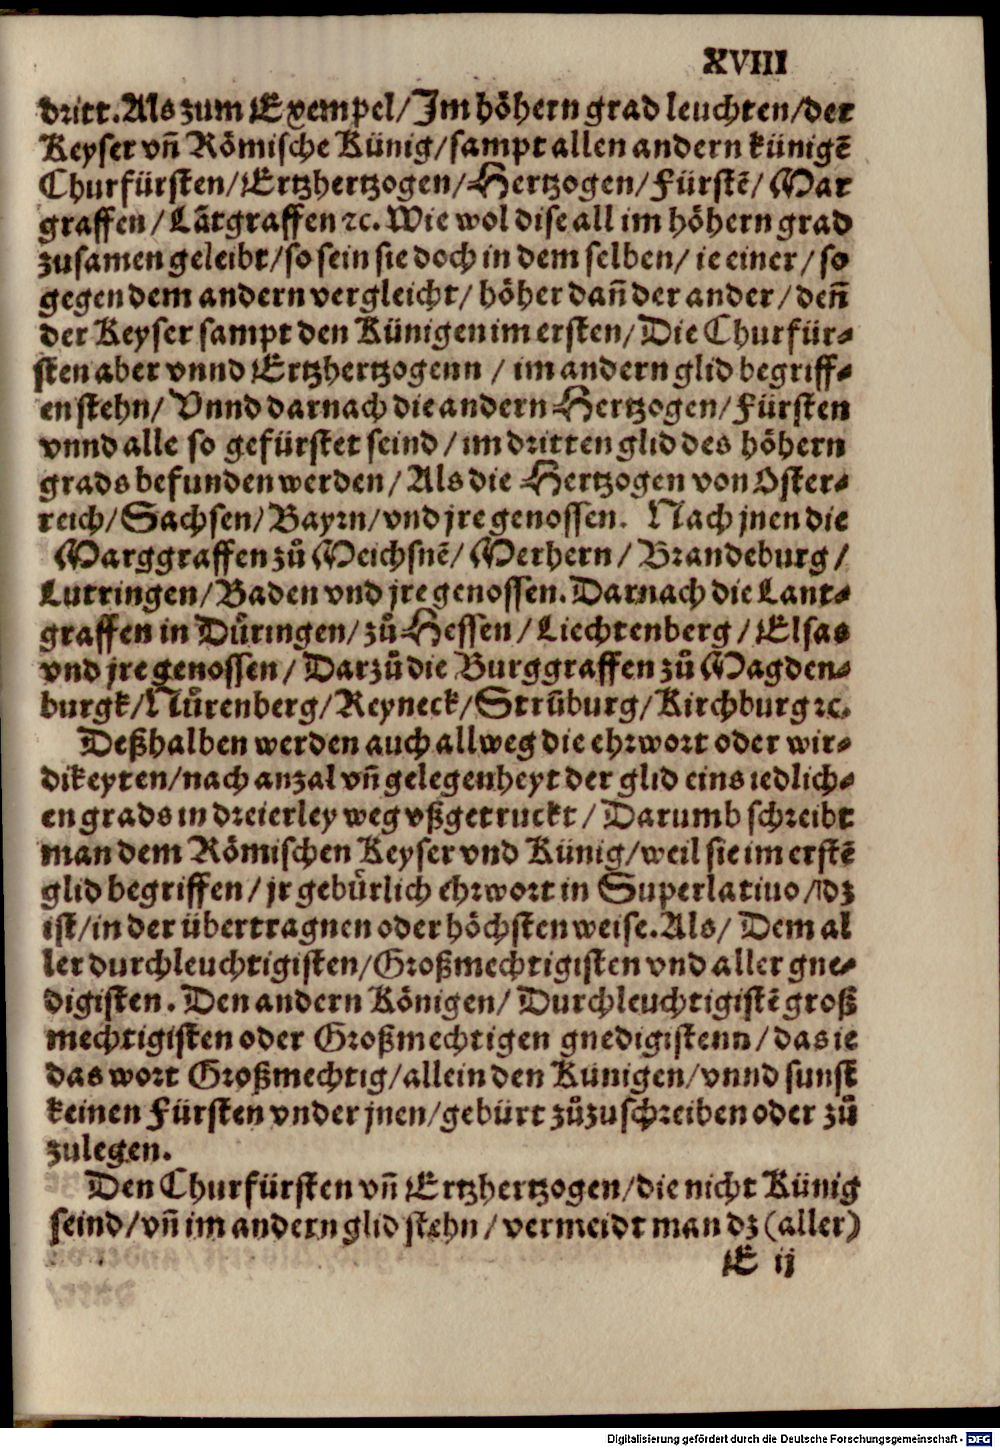 XVIII
dritt. Als zum Exempel/ Jm höhern grad leuchten/ der
Keyser vñ Römische Künig/ sampt allen andern künigẽ
Churfürsten/ Ertzhertzogen/ Hertzogen/ Fürstẽ/ Mar
graffen/ Lãtgraffen ꝛc. Wie wol dise all im höhern grad
zusamen geleibt/ so sein sie doch in dem selben/ ie einer/ so
gegen dem andern vergleicht/ höher dañ der ander/ deñ
der Keyser sampt den Künigen im ersten/ Die Churfür-
sten aber vnnd Ertzhertzogenn / im andern glid begriff-
en stehn/ Vnnd darnach die andern Hertzogen/ Fürsten
vnnd alle so gefürstet seind / im dritten glid des höhern
grads befunden werden/ Als die Hertzogen von Oster-
reich/ Sachsen/ Bayrn/ vnd jre genossen. Nach jnen die
Marggraffen zů Meichsnẽ/ Merhern / Brandeburg /
Luttringen/ Baden vnd jre genossen. Darnach die Lant-
graffen in Düringen/ zů Hessen / Liechtenberg / Elsas
vnd jre genossen / Darzů die Burggraffen zů Magden-
burgk/ Nůrenberg/ Reyneck/ Strũburg/ Kirchburg ꝛc.
Deßhalben werden auch allweg die ehrwort oder wir-
dikeyten/ nach anzal vñ gelegenheyt der glid eins iedlich-
en grads in dreierley weg vßgetruckt / Darumb schreibt
man dem Römischen Keyser vnd Künig/ weil sie im erstẽ
glid begriffen / jr gebürlich ehrwort in Superlatiuo / dz
ist/ in der übertragnen oder höchsten weise. Als/ Dem al
ler durchleuchtigisten/ Großmechtigisten vnd aller gne-
digisten. Den andern Königen/ Durchleuchtigistẽ groß
mechtigisten oder Großmechtigen gnedigistenn / das ie
das wort Großmechtig/ allein den Künigen/ vnnd sunst
keinen Fürsten vnder jnen/ gebürt zůzuschreiben oder zů
zulegen.
Den Churfürsten vñ Ertzhertzogen/ die nicht Künig
seind/ vñ im andern glid stehn / vermeidt man dz (aller)
E ij
Digitalisierung gefördert durch die Deutsche Forschungsgemeinschaft - DFG